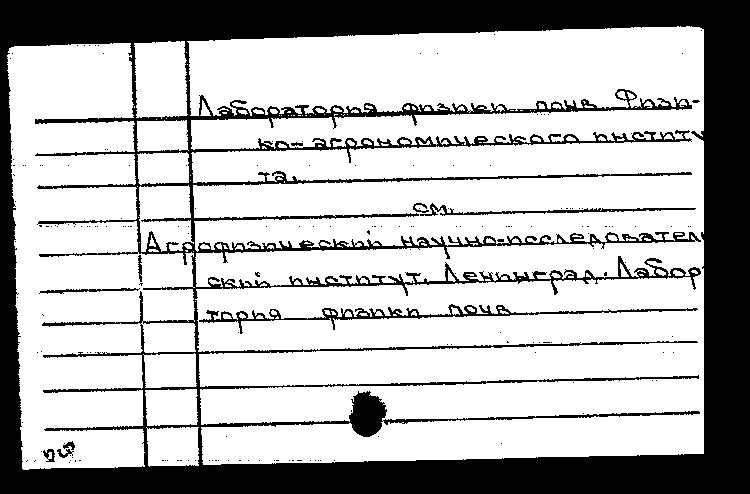 Лаборатория физики почв Физи-
ко-агрономического институ
та.
см.
Агрофизический научно-исследовател
ский институт. Ленинград. Лабор
тория физики почв